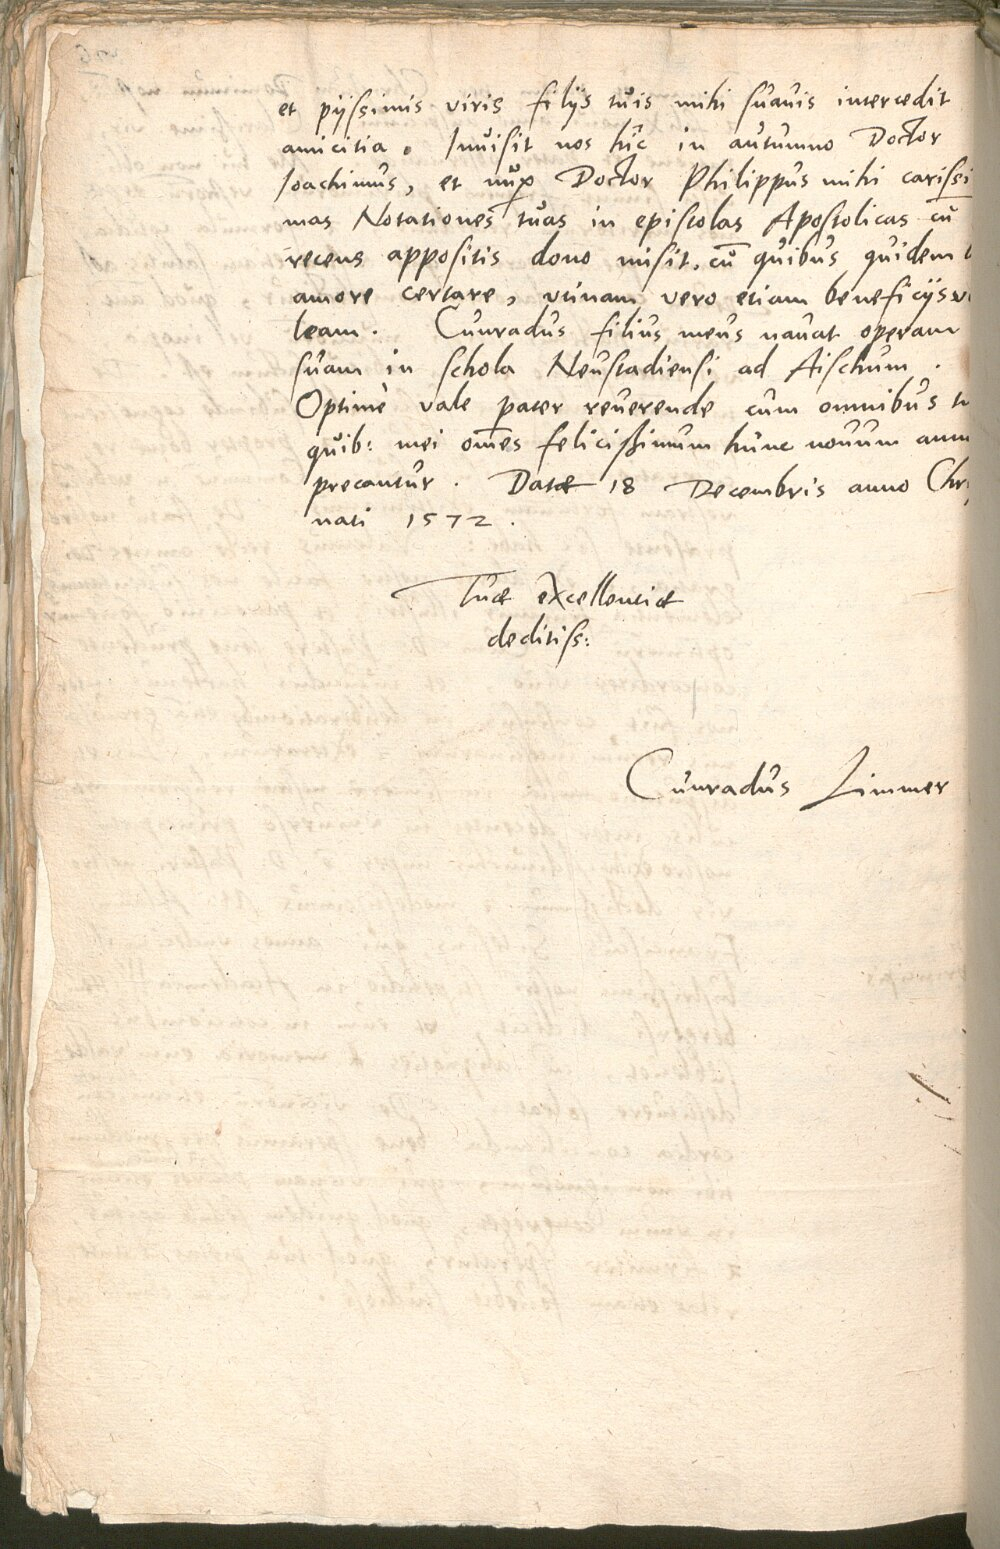 et pijssimis viris filijs tuis mihi suavis intercedit
amicitia. Invisit nos huc in autumno Doctor
Joachimus, et nup Doctor Philippus mihi carissi
mas Notationes tuas in epistolas Apostolicas cū
recens appositis dono misit. cū quibus quidem
amore certare, utinam vero etiam beneficijs
leam. Cunradus filius meus navat operam
suam in schola Neustadiensi ad Aischum.
Optime vale pater reverende cum omnibus tu
quib: mei oēs felicissimum hunc novum ann
precantur. Datæ 18 Decembris anno Chr
nati 1572.
Tuæ excellentiæ
deditiss:
Cunradus Limmer